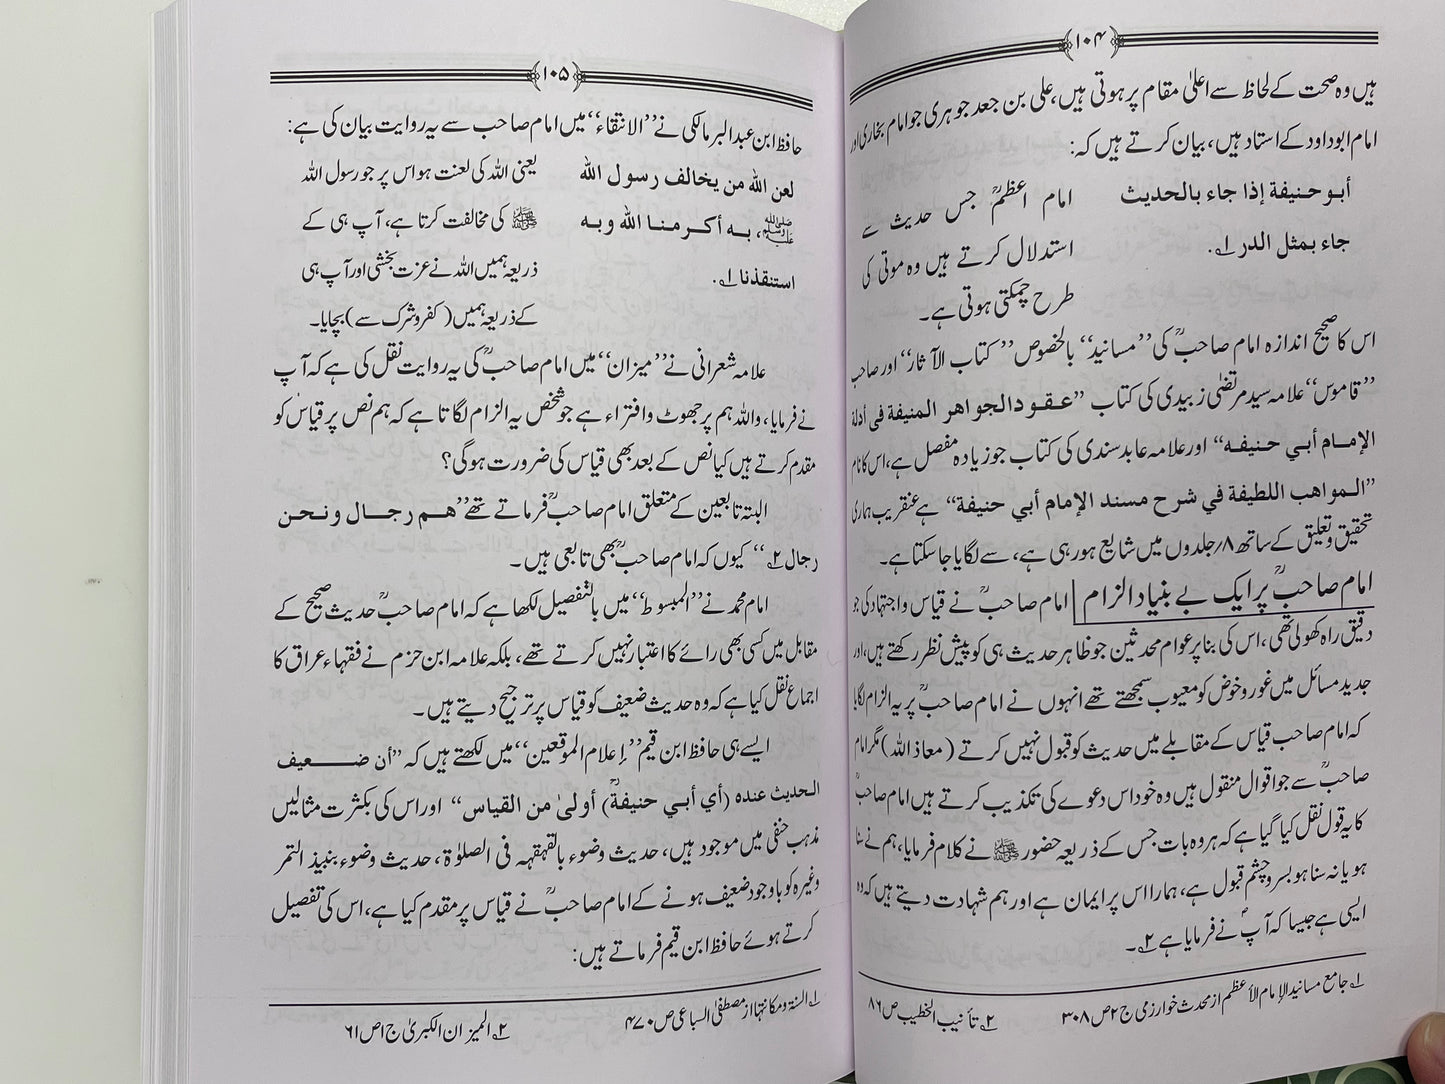 ۱۰۴
ہیں وہ صحت کے لحاظ سے اعلیٰ مقام پر ہوتی ہیں، علی بن جعد جوہری جو امام بخاری اور
امام ابوداود کے استاد ہیں، بیان کرتے ہیں کہ:
أبو حنیفة إذا جاء بالحدیث
جاء بمثل الدر ۱؎.
امام اعظمؒ جس حدیث سے
استدلال کرتے ہیں وہ موتی کی
طرح چمکتی ہوتی ہے۔
اس کا صحیح اندازہ امام صاحبؒ کی ’’مسانید‘‘ بالخصوص ’’کتاب الآثار‘‘ اور صاحب
’’قاموس‘‘ علامہ سید مرتضیٰ زبیدی کی کتاب ’’عقود الجواهر المنیفة فی أدلة
الإمام أبي حنیفه‘‘ اور علامہ عابد سندی کی کتاب جو زیادہ مفصل ہے، اس کا نام
’’المواهب اللطیفة في شرح مسند الإمام أبي حنیفة‘‘ ہے عنقریب ہماری
تحقیق وتعلیق کے ساتھ ۸؍جلدوں میں شایع ہورہی ہے، سے لگایا جاسکتا ہے۔
امام صاحبؒ پر ایک بے بنیاد الزام امام صاحبؒ نے قیاس واجتہاد کی جو
دقیق راہ کھولی تھی، اس کی بنا پر عوام محدثین جو ظاہر حدیث ہی کو پیش نظر رکھتے ہیں، اور
جدید مسائل میں غور وخوض کو معیوب سمجھتے تھے انہوں نے امام صاحبؒ پر یہ الزام لگایا
کہ امام صاحب قیاس کے مقابلے میں حدیث کو قبول نہیں کرتے (معاذ اللہ) مگر امام
صاحبؒ سے جو اقوال منقول ہیں وہ خود اس دعوے کی تکذیب کرتے ہیں امام صاحبؒ
کا یہ قول نقل کیا گیا ہے کہ ہر وہ بات جس کے ذریعہ حضور ﷺ نے کلام فرمایا، ہم نے سنا
ہو یا نہ سنا ہو بسر وچشم قبول ہے، ہمارا اس پر ایمان ہے اور ہم شہادت دیتے ہیں کہ وہ
ایسی ہے جیسا کہ آپؐ نے فرمایا ہے ۲؎۔
۱؎ جامع مسانید الإمام الأعظم از محدث خوارزمی ج ۲ ص ۳۰۸
۲؎ تأنیب الخطیب ص ۸۶
۱۰۵
حافظ ابن عبد البر مالکی نے ’’الانتقاء‘‘ میں امام صاحب سے یہ روایت بیان کی ہے:
لعن الله من یخالف رسول الله
ﷺ، به أکرمنا الله وبه
استنقذنا ۱؎.
یعنی اللہ کی لعنت ہو اس پر جو رسول اللہ
ﷺ کی مخالفت کرتا ہے، آپ ہی کے
ذریعہ ہمیں اللہ نے عزت بخشی اور آپ ہی
کے ذریعہ ہمیں (کفر وشرک سے) بچایا۔
علامہ شعرانی نے ’’میزان‘‘ میں امام صاحبؒ کی یہ روایت نقل کی ہے کہ آپ
نے فرمایا، واللہ ہم پر جھوٹ وافتراء ہے جو شخص یہ الزام لگاتا ہے کہ ہم نص پر قیاس کو
مقدم کرتے ہیں کیا نص کے بعد بھی قیاس کی ضرورت ہوگی؟
البتہ تابعین کے متعلق امام صاحبؒ فرماتے تھے ’’هم رجال ونحن
رجال ۲؎‘‘ کیوں کہ امام صاحبؒ بھی تابعی ہیں۔
امام محمد نے ’’المبسوط‘‘ میں بالتفصیل لکھا ہے کہ امام صاحبؒ حدیث صحیح کے
مقابل میں کسی بھی رائے کا اعتبار نہیں کرتے تھے، بلکہ علامہ ابن حزم نے فقہاء عراق کا
اجماع نقل کیا ہے کہ وہ حدیث ضعیف کو قیاس پر ترجیح دیتے ہیں۔
ایسے ہی حافظ ابن قیم ’’إعلام الموقعین‘‘ میں لکھتے ہیں کہ ’’أن ضعیف
الحدیث عنده (أي أبي حنیفةؒ) أولیٰ من القیاس‘‘ اور اس کی بکثرت مثالیں
مذہب حنفی میں موجود ہیں، حدیث وضوء بالقهقهه فی الصلوٰة، حدیث وضوء بنبیذ التمر
وغیرہ کو باوجود ضعیف ہونے کے امام صاحبؒ نے قیاس پر مقدم کیا ہے، اس کی تفصیل
کرتے ہوئے حافظ ابن قیم فرماتے ہیں:
۱؎ السنة ومکانتها از مصطفیٰ السباعی ص ۴۷۰
۲؎ المیزان الکبریٰ ج ۱ ص ۶۱